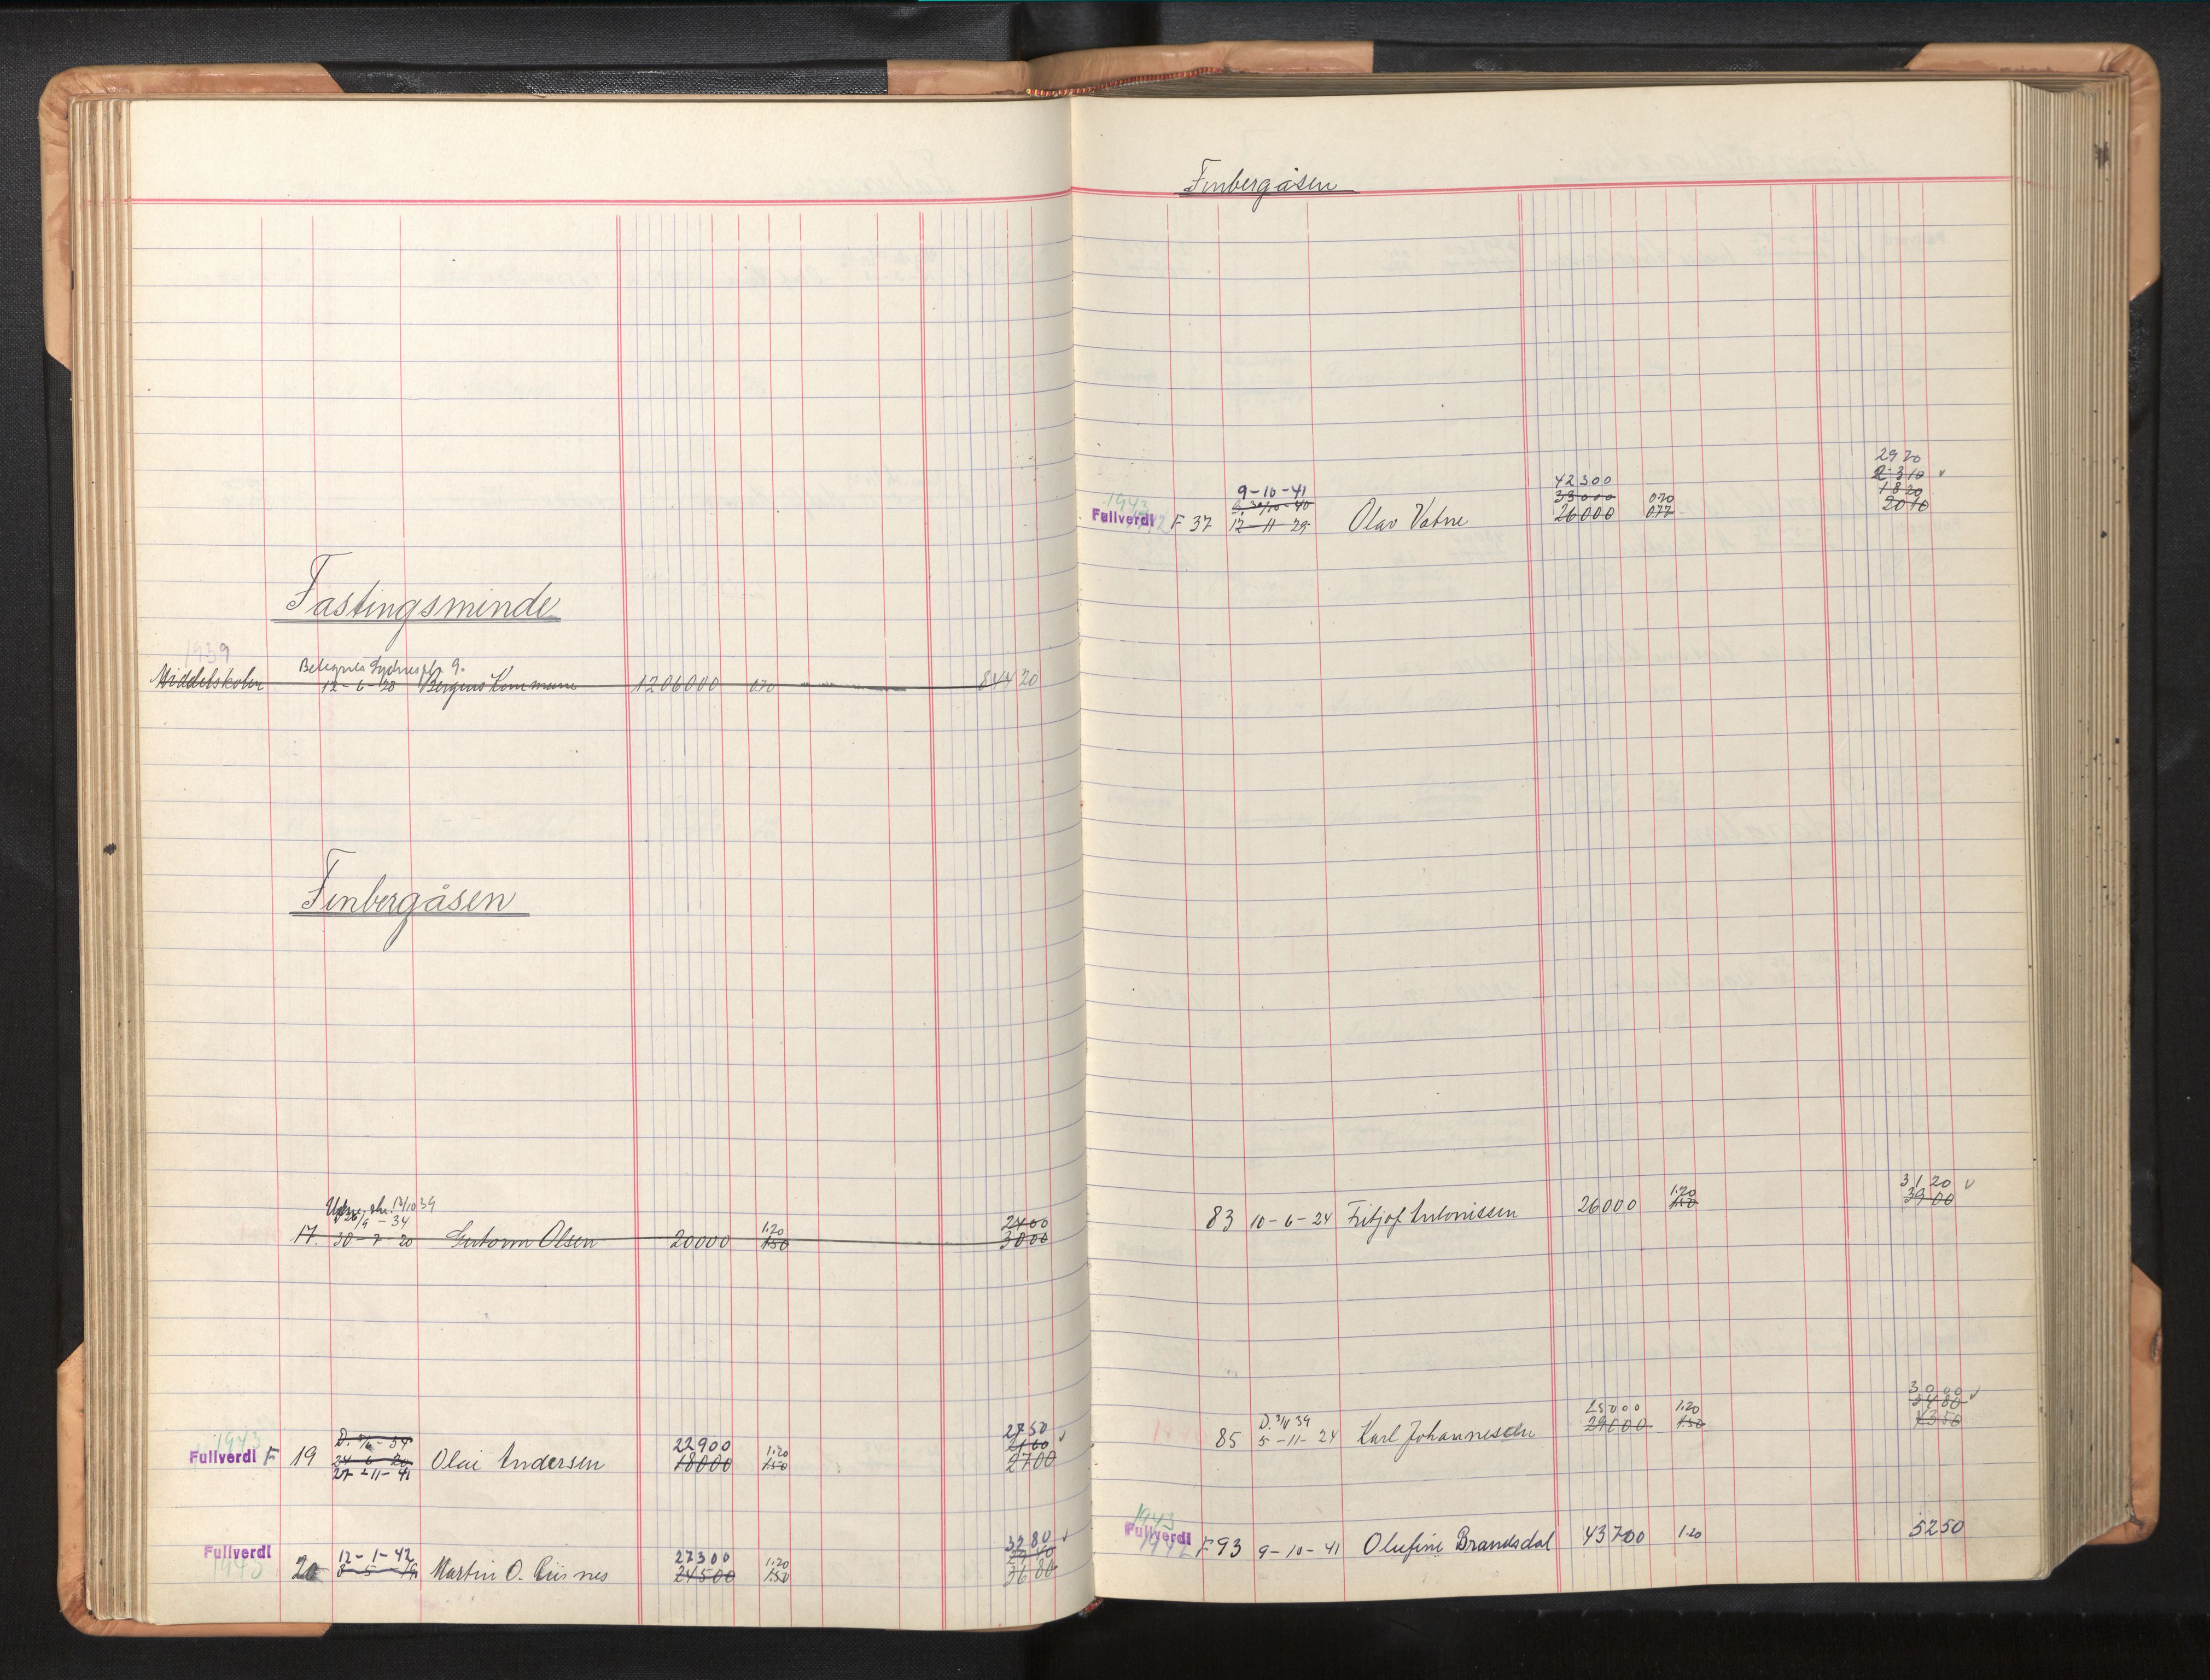 Fastingsminde
1939
Betegnes Sydnespl. 9.
Middelskolen 12-6-20 Bergens Kommune 1206000 0.70 844 20
Finbergåsen
12/10 39
26/9 - 34 2400
17. 30-7-20 Olsen 20000 1.20 1.50 3000
1943 27 50
D. - 34 22900 1.20 2160
Fullverdi F 19 24-6-20 Olai Andersen 18000 1.50 2700
27-11-41
Fullverdi 12-1-42 27300 1.20 32 80
1943 20 8-5-19 Martin O. 24500 1.50 29 40
36 80
Finbergåsen
29 20
9-10-41 42300 2310
1943 D. 30/10-40 33000 0.70 1820
Fullverdi F 37 12-11-29 Olav Vatne 26000 0.77 2010
1.20 31 20
83 10-6-24 Fritjof Antonissen 26000 1.50 39 00
30 00
D. 39 25000 1.20 34 80
85 5-11-24 Karl Johannesen 29000 1.50 4350
1943
Fullverdi F 93 9-10-41 Olufine Brandsdal 43700 1.20 5250
1942